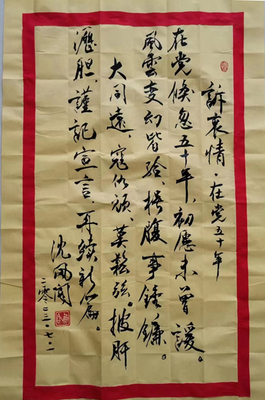 訴衷情·在党五十年
在党倏忽五十年,初愿未曾諼。
風雲变幻皆验,枵腹事锤鐮。
大同遠,寇仍頑,莫鬆弦。披肝
瀝胆,謹記宣言,再续新篇。
沈
二零二三.七.一